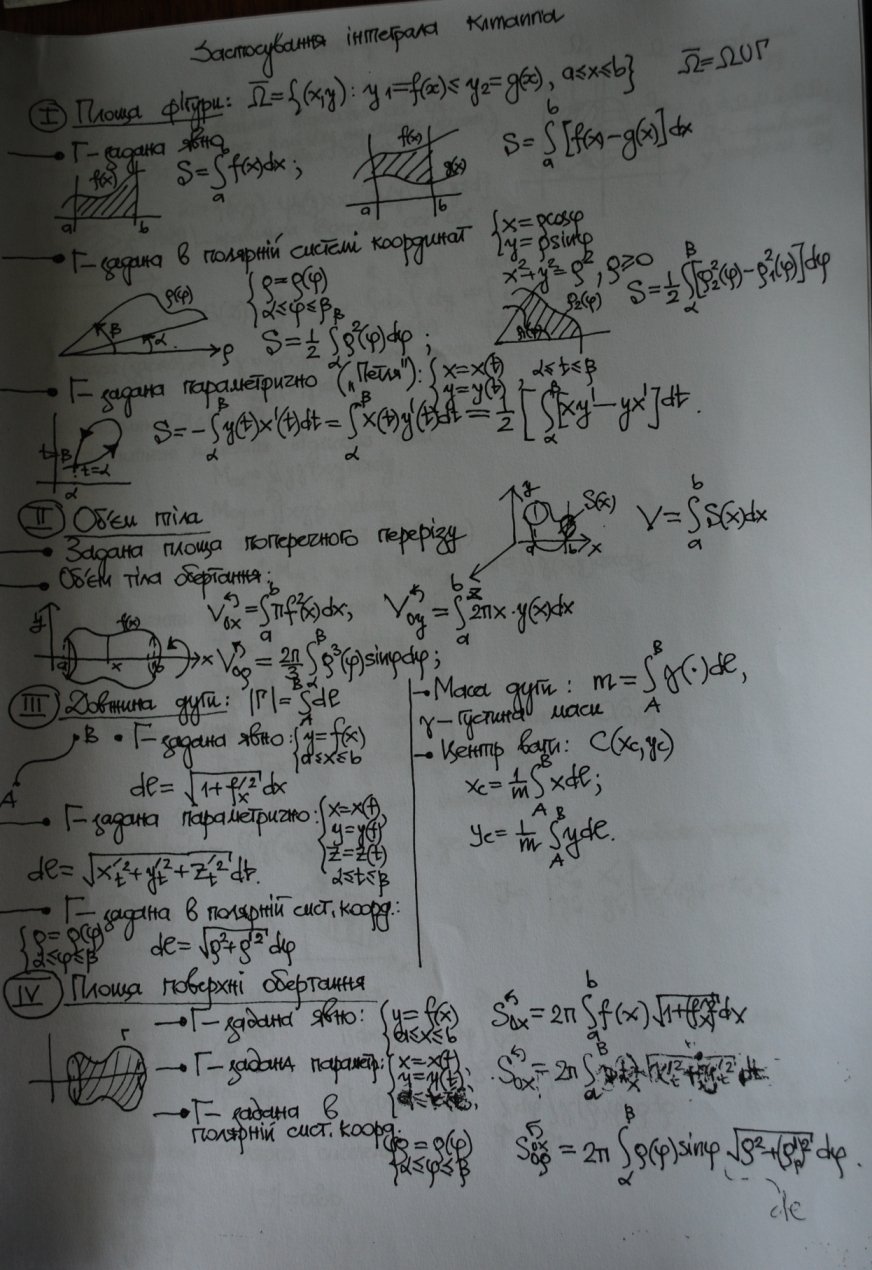 Застосування інтеграла Рімана
I Площа фігури: Ω̅={(x,y): y₁=f(x)≤y₂=g(x), a≤x≤b} Ω̅=Ω∪Γ
Γ-задана явно
f(x) a b S=∫ₐᵇf(x)dx; f(x) g(x) a b S=∫ₐᵇ[f(x)-g(x)]dx
Γ-задана в полярній системі координат {x=ρcosφ
y=ρsinφ
x²+y²=ρ², ρ≥0
ρ(φ) β α ρ {ρ=ρ(φ)
α≤φ≤β
S=½∫_α^β ρ²(φ)dφ; ρ₂(φ) ρ₁(φ) S=½∫_α^β[ρ₂²(φ)-ρ₁²(φ)]dφ
Γ-задана параметрично („Петля"): {x=x(t)
y=y(t) α≤t≤β
t=β t=α S=-∫_α^β y(t)x'(t)dt=∫_α^β x(t)y'(t)dt=½[∫_α^β[xy'-yx']dt.
II Об'єм тіла
Задана площа поперечного перерізу y S(x) a b x z V=∫ₐᵇS(x)dx
Об'єм тіла обертання:
y f(x) a x b x V_ox=∫ₐᵇπf²(x)dx, V_oy=∫ₐᵇ2πx·y(x)dx
V_oρ=2π/3∫_α^β ρ³(φ)sinφdφ;
III Довжина дуги: |Γ|=∫_A^B dl
A B Γ-задана явно: {y=f(x)
a≤x≤b
dl=√(1+f'ₓ²)dx
Γ-задана параметрично: {x=x(t)
y=y(t)
z=z(t)
α≤t≤β
dl=√(x'ₜ²+y'ₜ²+z'ₜ²)dt.
Γ-задана в полярній сист. коорд.:
{ρ=ρ(φ)
α≤φ≤β dl=√(ρ²+ρ'²)dφ
Маса дуги: m=∫_A^B γ(·)dl,
γ-густина маси
Центр ваги: C(x_c,y_c)
x_c=1/m∫_A^B xdl;
y_c=1/m∫_A^B ydl.
IV Площа поверхні обертання
Γ Γ-задана явно: {y=f(x)
a≤x≤b S_ox=2π∫ₐᵇf(x)√(1+(f'ₓ)²)dx
Γ-задана параметр: {x=x(t),
y=y(t), S_ox=2π∫
Γ-задана в
полярній сист. коорд:
{ρ=ρ(φ)
α≤φ≤β S_oρ^ox=2π∫_α^β ρ(φ)sinφ√(ρ²+(ρ'_φ)²)dφ.
dl